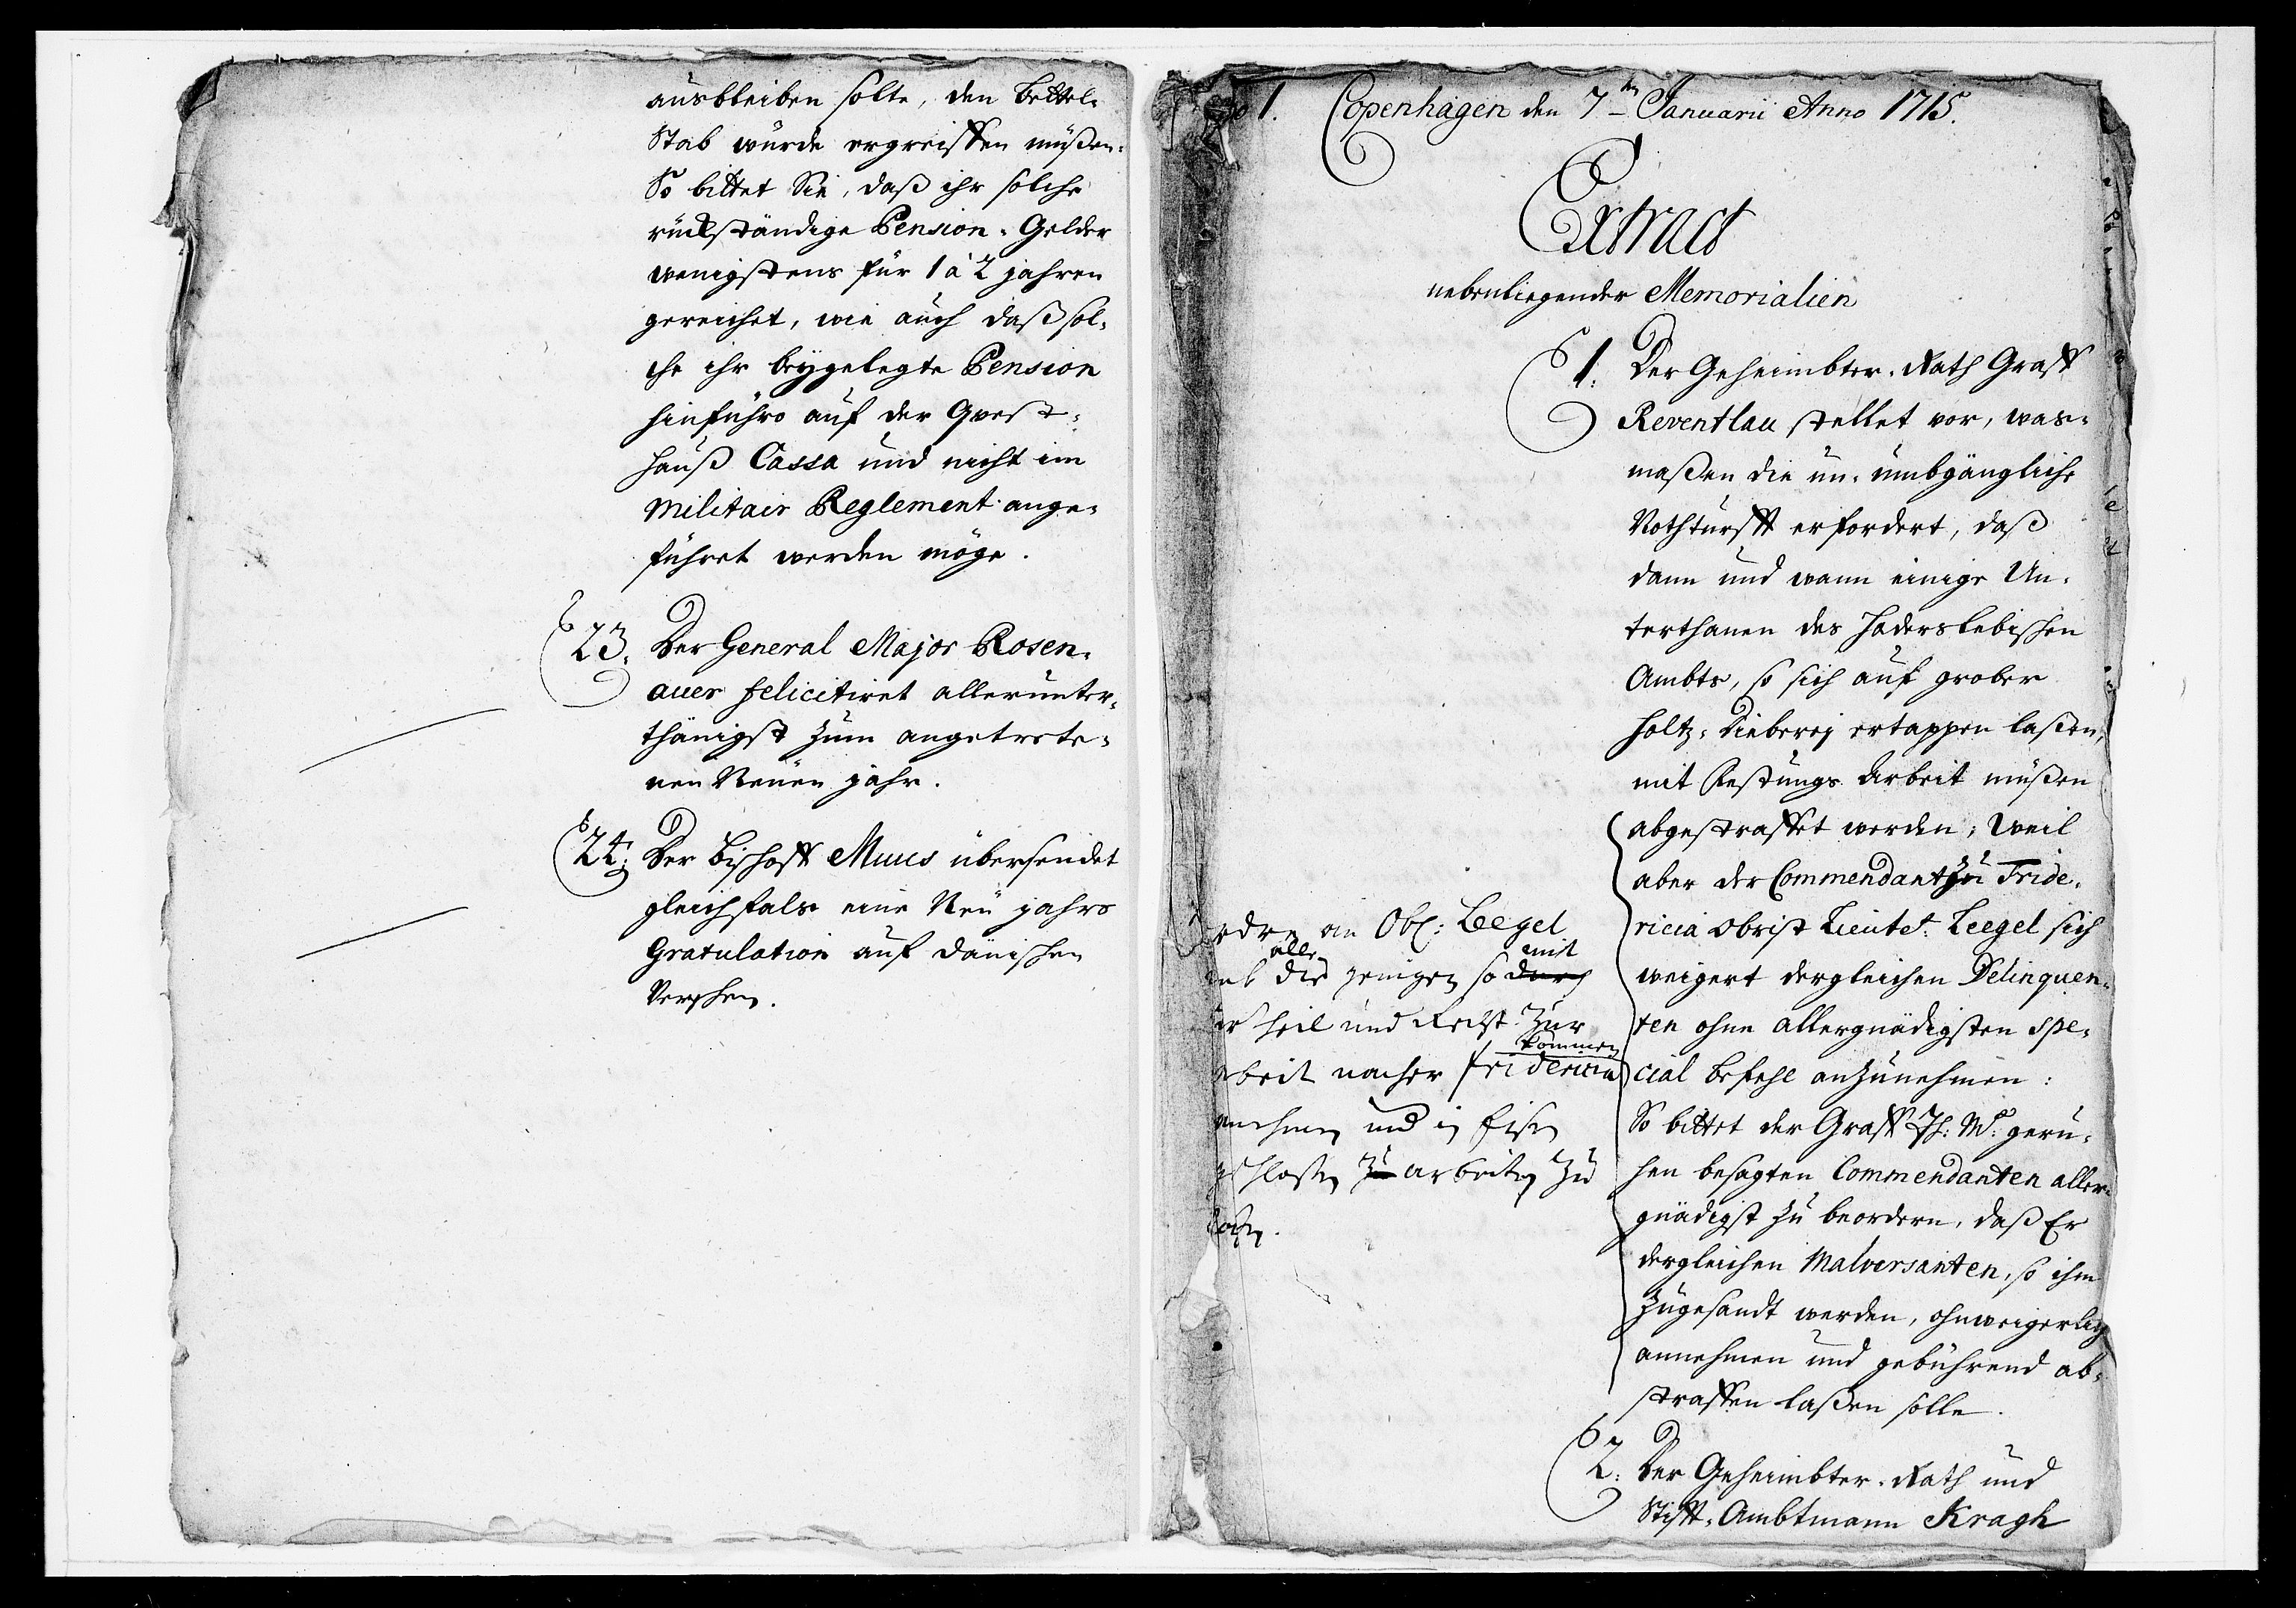 ausbleiben solte, den Bettel-
Stab würde ergreiffen müßen.
So bittet Sie, daß ihr solche
rückständige Pension-Gelder
wenigstens für 1 à 2 jahren
gereichet, wie auch daß sol-
che ihr beygelegte Pension
hinführo auf der Qvest-
hauß Cassa und nicht im
Militair Reglement ange-
führet werden möge.
23. Der General Major Rosen-
auer felicitiret allerunter-
thänigst zum angetrete-
nen Neuen jahr.
24. Der Bischoff Muus übersendet
gleichfals eine Neü jahrs
Gratulation auf dänischen
Verschen.
No 1. Copenhagen den 7ten Januarii Anno 1715.
Extract
nebenliegender Memorialien
1. Der Geheimbter-Rath Graff
Reventlau stellet vor, was-
maßen die un-umbgängliche
Nothturfft erfordert, daß
dann und wann einige Un-
terthanen des Haderslebischen
Ambts, so sich auf grober
Holtz-Dieberej ertappen laßen,
mit Festungs Arbeit müßen
abgestraffet werden; Weil
aber der Commendant zu Fride-
ricia Obrist Lieutet: Leegel sich
weigert dergleichen Delinquen-
ten ohne allergnädigsten Spe-
cial befehl anzunehmen:
So bittet der Graff Ih: M: geru-
hen besagten Commendanten aller-
gnädigst zu beordern, daß Er
dergleichen Malversanten, so ihm
zugesandt werden, ohnweigerlich
annehmen und gebührend ab-
straffen laßen solle.
rdre an Obl: Legel
alle die jenigen so durch mit
heil und Recht zur
rbeit nacher Fridericia kommen
nehmen und in Eisen
schloßen zu arbeiten zu
laßen.
2. Der Geheimbter-Rath und
Stifft-Ambtmann Kragh